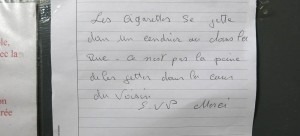 Les cigarettes se jette
dans un cendrier ou dans la
rue - ce n'est pas la peine
de les jetter dans la cour
du voisin
S.V.P Merci